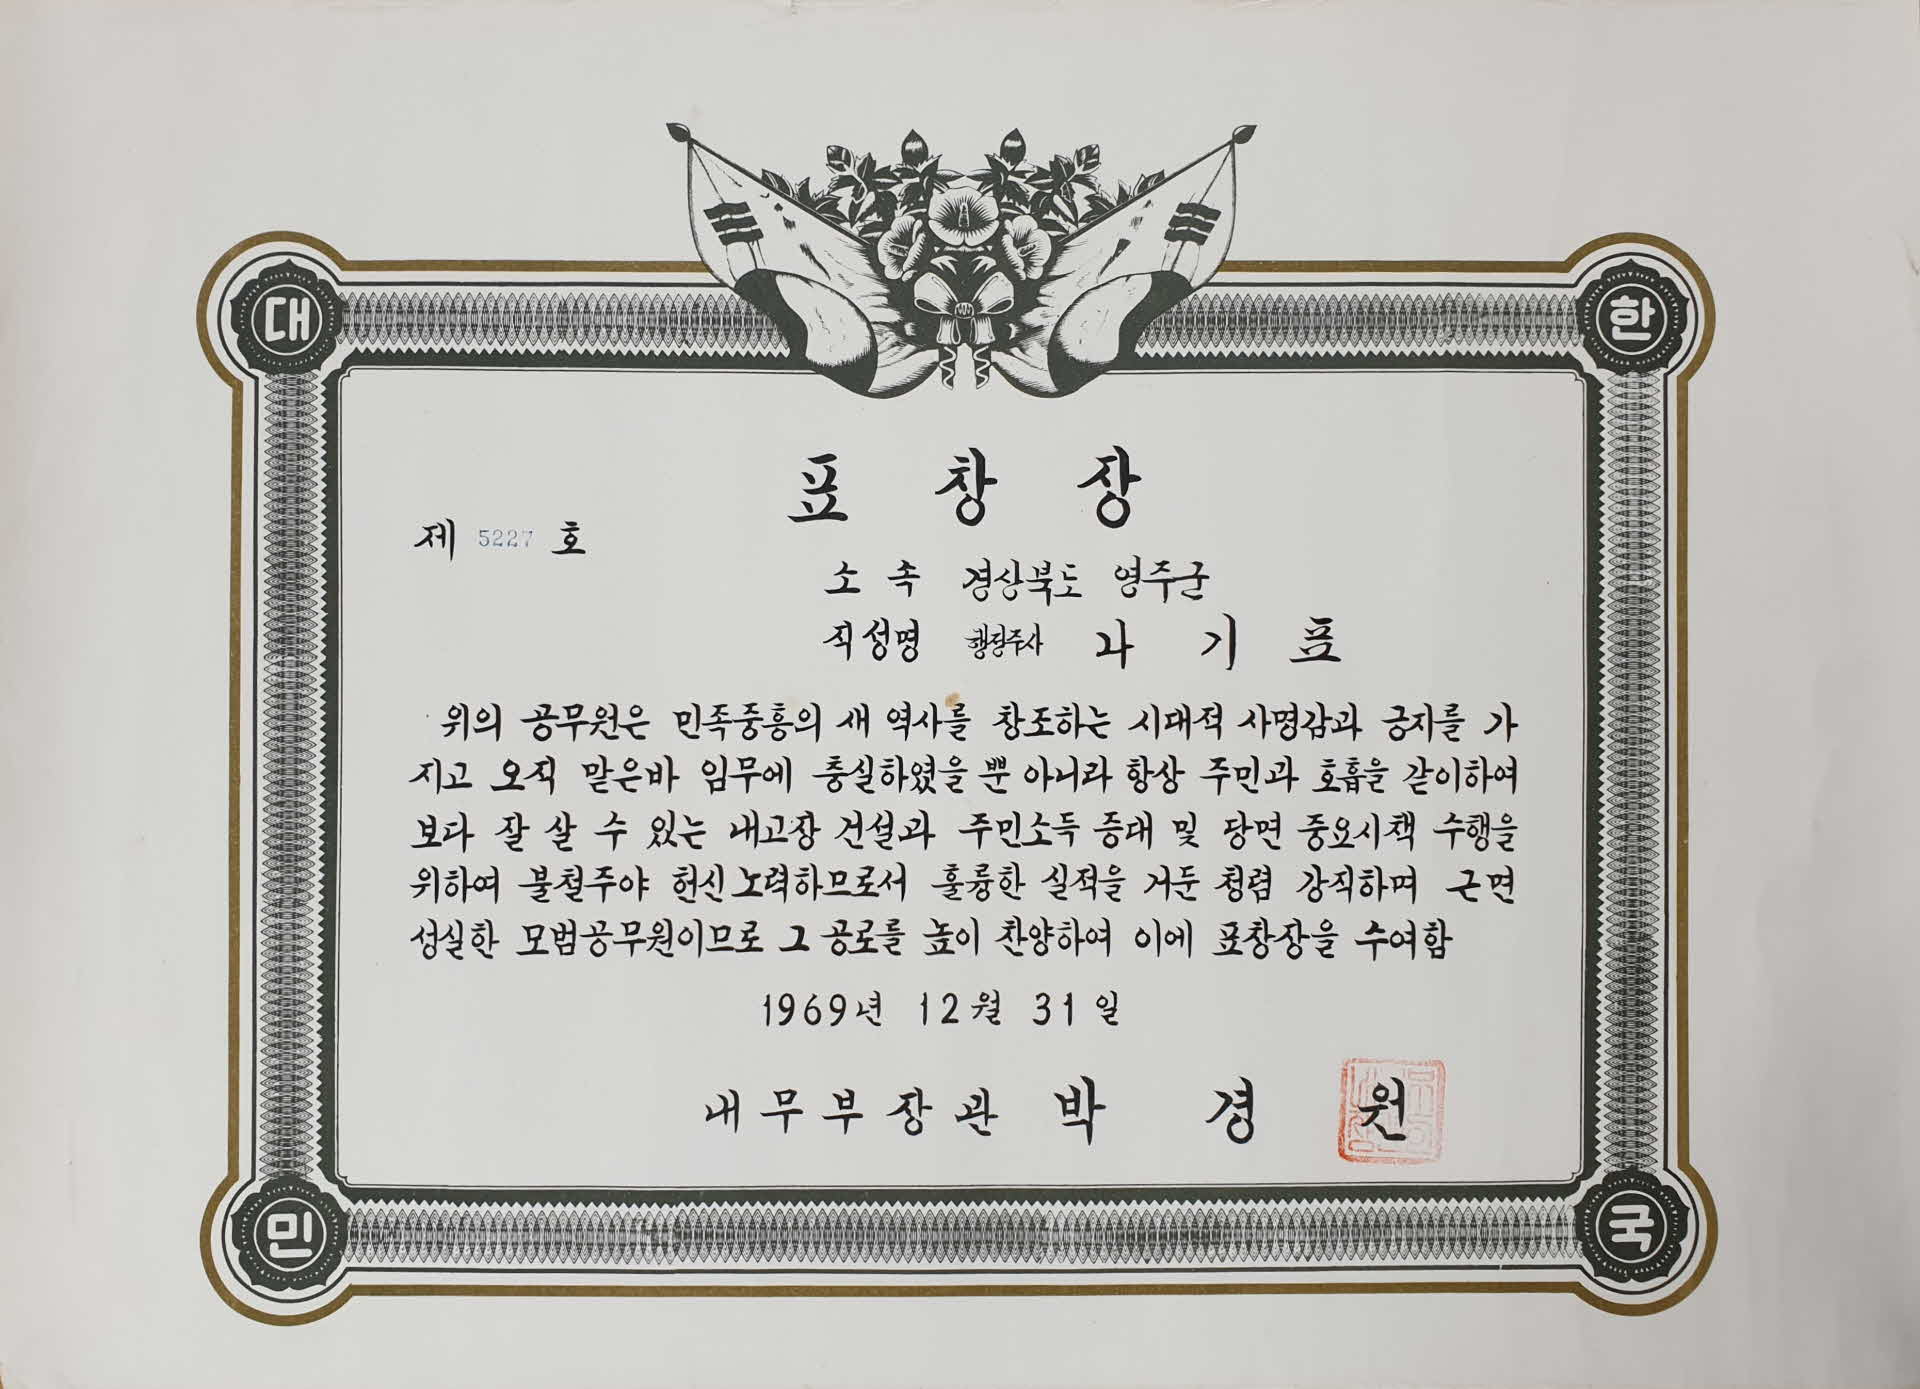 대 한
표 창 장
제 5227 호
소 속 경상북도 영주군
직성명 행정주사 나 기 표
위의 공무원은 민족중흥의 새 역사를 창조하는 시대적 사명감과 긍지를 가
지고 오직 맡은바 임무에 충실하였을 뿐 아니라 항상 주민과 호흡을 같이하여
보다 잘 살 수 있는 내고장 건설과 주민소득 증대 및 당면 중요시책 수행을
위하여 불철주야 헌신노력하므로서 훌륭한 실적을 거둔 청렴 강직하며 근면
성실한 모범공무원이므로 그 공로를 높이 찬양하여 이에 표창장을 수여함
1969년 12월 31일
내무부장관 박 경 원
민 국